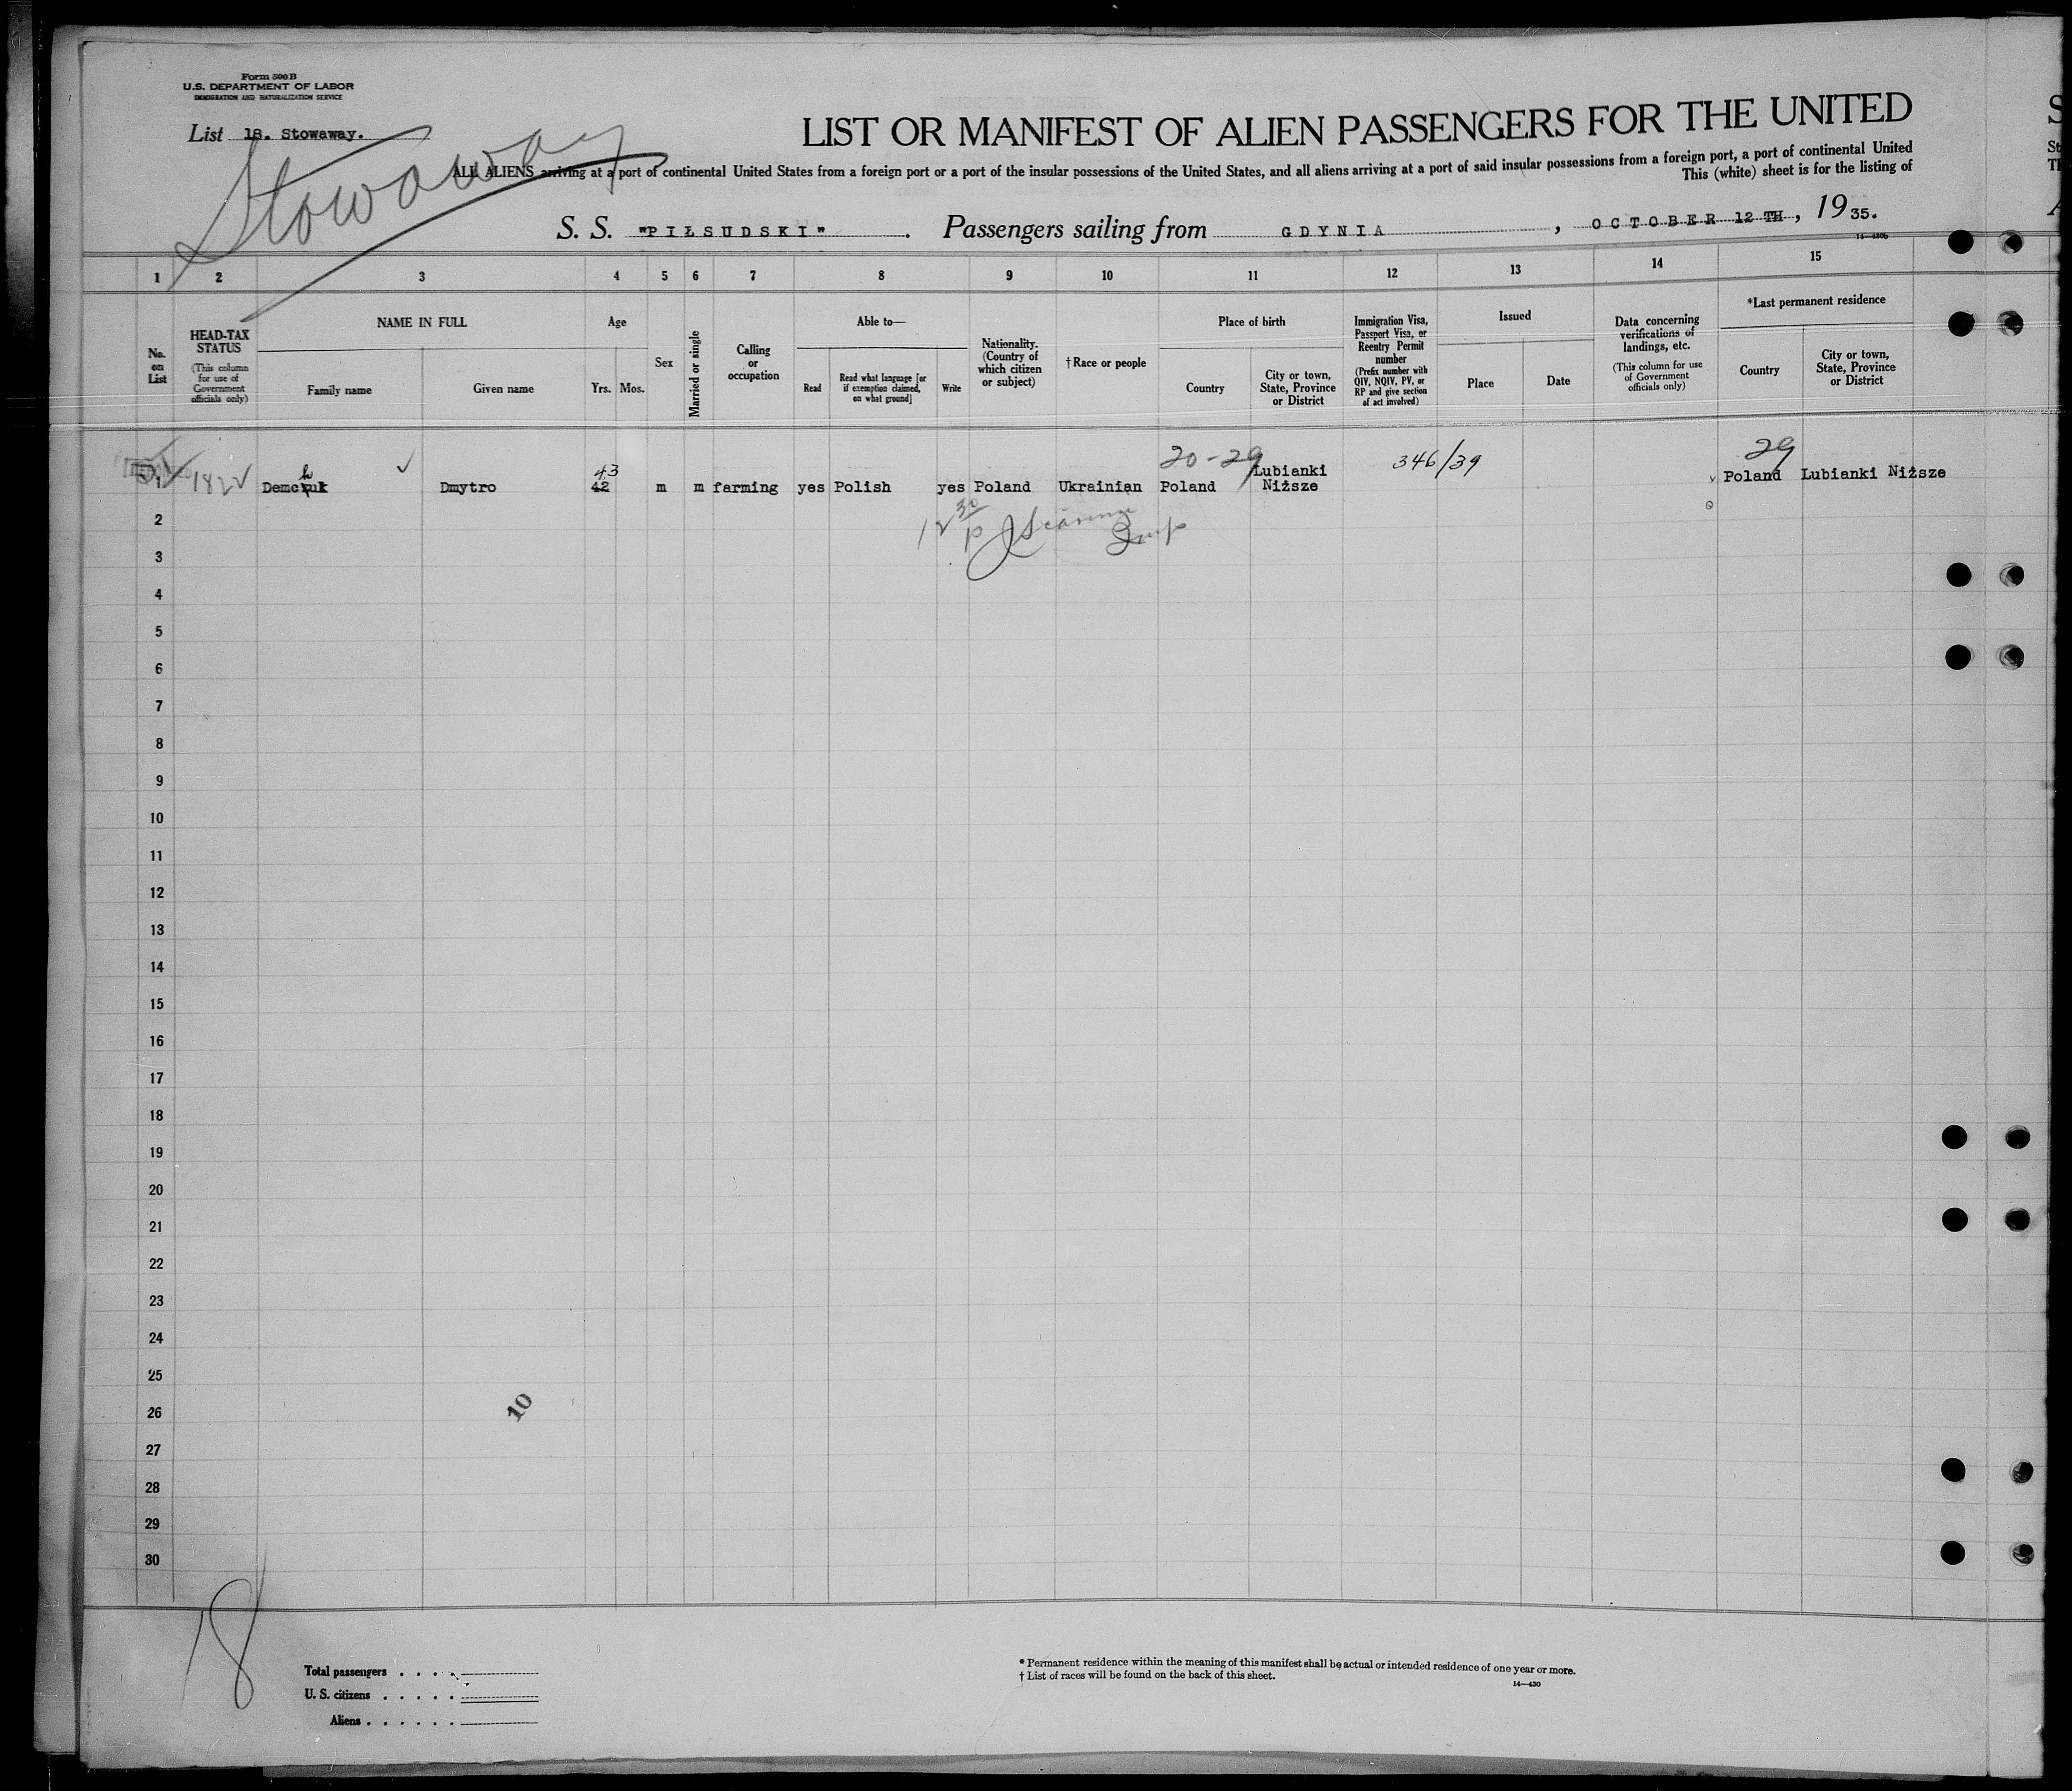 Form 500 B
U.S. DEPARTMENT OF LABOR
IMMIGRATION AND NATURALIZATION SERVICE
List 18. Stowaway.
Stowaway
LIST OR MANIFEST OF ALIEN PASSENGERS FOR THE UNITED
ALL ALIENS arriving at a port of continental United States from a foreign port or a port of the insular possessions of the United States, and all aliens arriving at a port of said insular possessions from a foreign port, a port of continental United
This (white) sheet is for the listing of
S. S. "PIŁSUDSKI". Passengers sailing from GDYNIA, OCTOBER 12 TH, 1935.
14—430b
1 2 3 4 5 6 7 8 9 10 11 12 13 14 15
No. on List
HEAD-TAX STATUS
(This column for use of Government officials only)
NAME IN FULL
Family name
Given name
Age
Yrs. Mos.
Sex
Married or single
Calling or occupation
Able to—
Read
Read what language [or if exemption claimed, on what ground]
Write
Nationality. (Country of which citizen or subject)
†Race or people
Place of birth
Country
City or town, State, Province or District
Immigration Visa, Passport Visa, or Reentry Permit number
(Prefix number with QIV, NQIV, PV, or RP and give section of act involved)
Issued
Place
Date
Data concerning verifications of landings, etc.
(This column for use of Government officials only)
*Last permanent residence
Country
City or town, State, Province or District
43 20-29 346/39 29
1 182 ✓ Demchuk ✓ Dmytro 42 m m farming yes Polish yes Poland Ukrainian Poland Lubianki Niższe Poland Lubianki Niższe
12 30 p
Insp
2
3
4
5
6
7
8
9
10
11
12
13
14
15
16
17
18
19
20
21
22
23
24
25
26
10
27
28
29
30
18
Total passengers
U. S. citizens
Aliens
* Permanent residence within the meaning of this manifest shall be actual or intended residence of one year or more.
† List of races will be found on the back of this sheet.
14—430